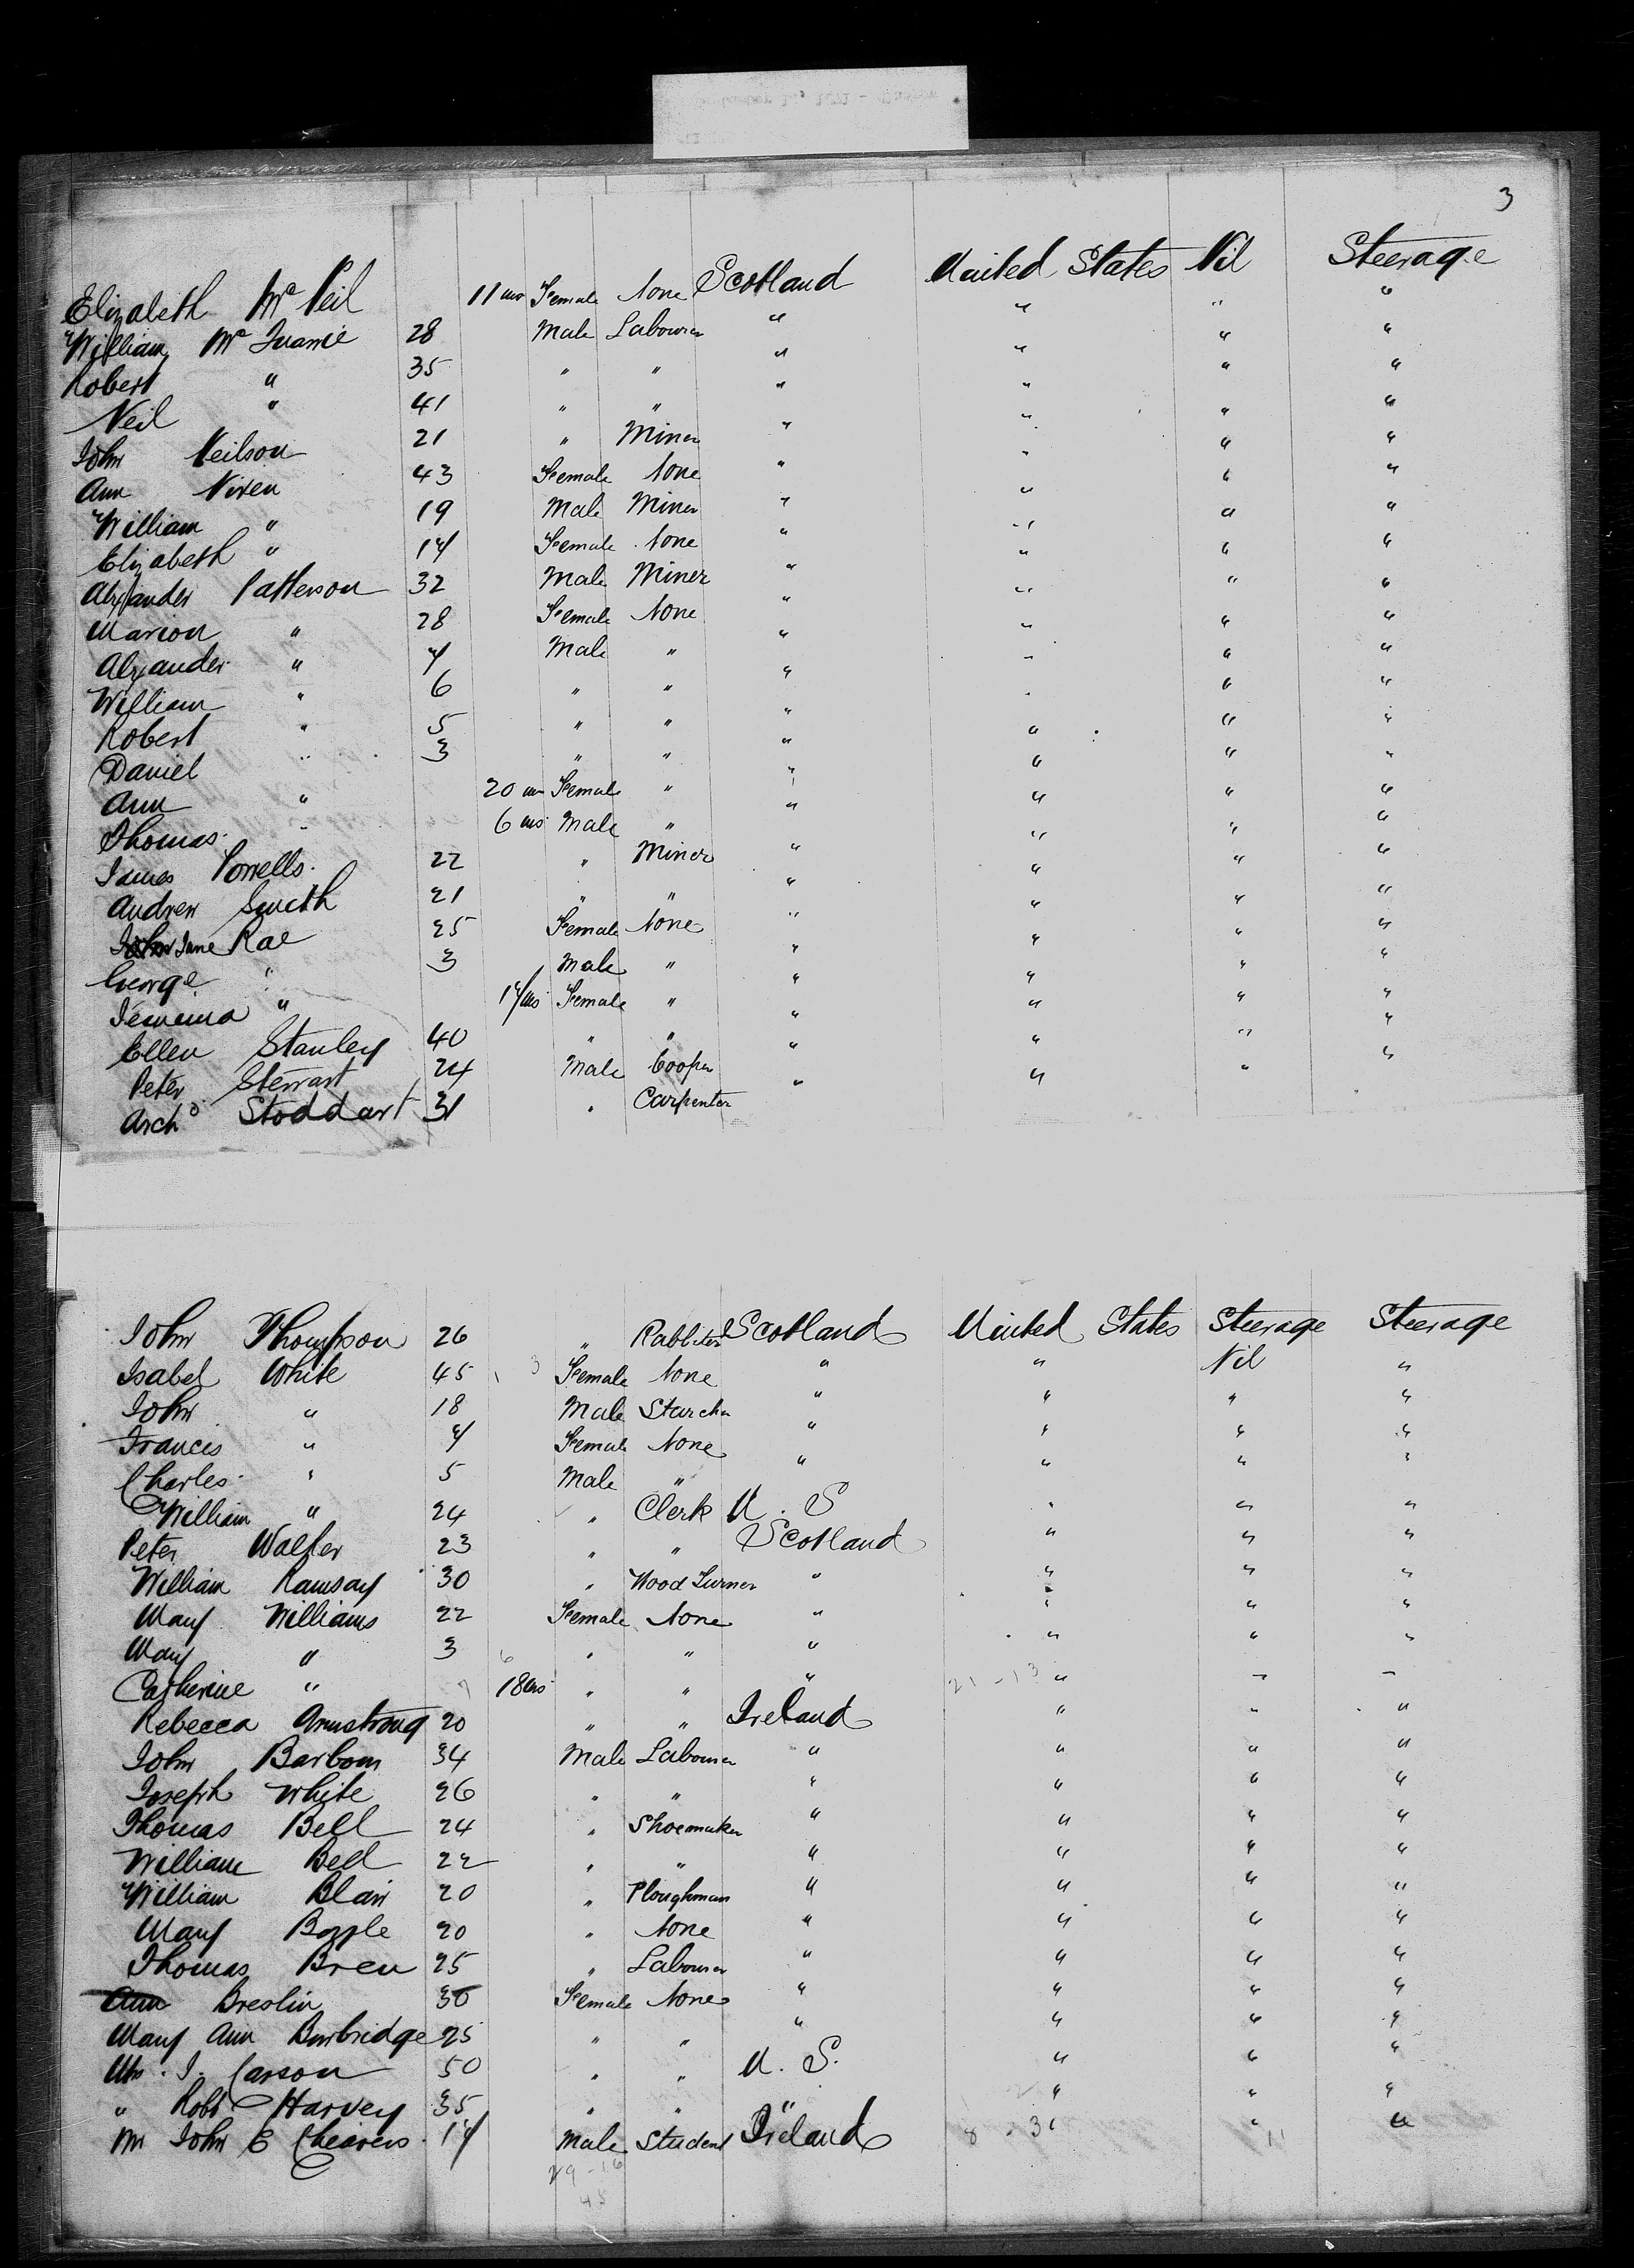 3
Elizabeth Mc Neil 11 mos Female None Scotland United States Nil Steerage
William Mc 28 Male Labourer " " " "
Robert " 35 " " " " " "
Neil " 41 " " " " " "
John Neilson 21 " Miner " " " "
Ann Nixen 43 Female None " " " "
William " 19 Male Miner " " " "
Elizabeth " 17 Female None " " " "
Alexander Patterson 32 Male Miner " " " "
Marion " 28 Female None " " " "
Alexander " 7 Male " " " " "
William " 6 " " " " " "
Robert " 5 " " " " " "
Daniel " 3 " " " " " "
Ann " 20 ms Female " " " " "
Thomas " 6 ms Male " " " " "
James 22 " Miner " " " "
Andrew Smith 21 " " " " " "
John Jane Rae 25 Female None " " " "
George " 3 Male " " " " "
Jemima " 17 ms Female " " " " "
Ellen Stanley 40 " " " " " "
Peter Stewart 24 Male Cooper " " " "
Archd Stoddart 31 " Carpenter " " "
John Thompson 26 " Scotland United States Steerage Steerage
Isabel White 45 Female None " " Nil "
John " 18 Male Starcher " " " "
Francis " 7 Female None " " " "
Charles " 5 Male " " " " "
William " 24 " Clerk U. S " " "
Peter Walker 23 " " Scotland " " "
William Ramsay 30 " Wood Turner " " " "
Mary Williams 22 Female None " " " "
Mary " 3 " " " " " "
Catherine " 18 ms " " " 21 - 13 " " "
Rebecca Armstrong 20 " " Ireland " " "
John Barbour 34 Male Labourer " " " "
Joseph White 26 " " " " " "
Thomas Bell 24 " Shoemaker " " " "
William Bell 22 " " " " " "
William Blair 20 " Ploughman " " " "
Mary Boyle 20 " None " " " "
Thomas Bren 25 " Labourer " " " "
Ann Breslin 30 Female None " " " "
Mary Ann Burbridge 25 " " " " " "
Mrs. J. Carson 50 " " U. S. " " "
" Robt Harvey 35 " " " " " "
Mr John C Cheavers 17 Male Student Ireland " "
29 - 16
45